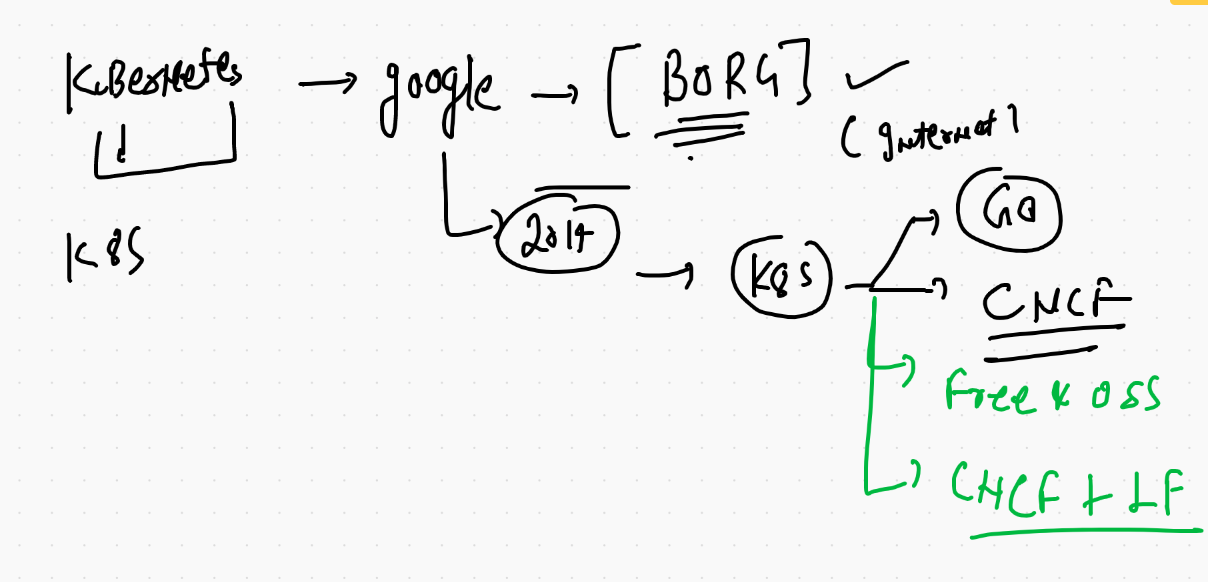 Kubernetes → google → [BORG] ✓
(Internet)
2014
K8S
K8S
GO
CNCF
Free & OSS
CNCF + LF